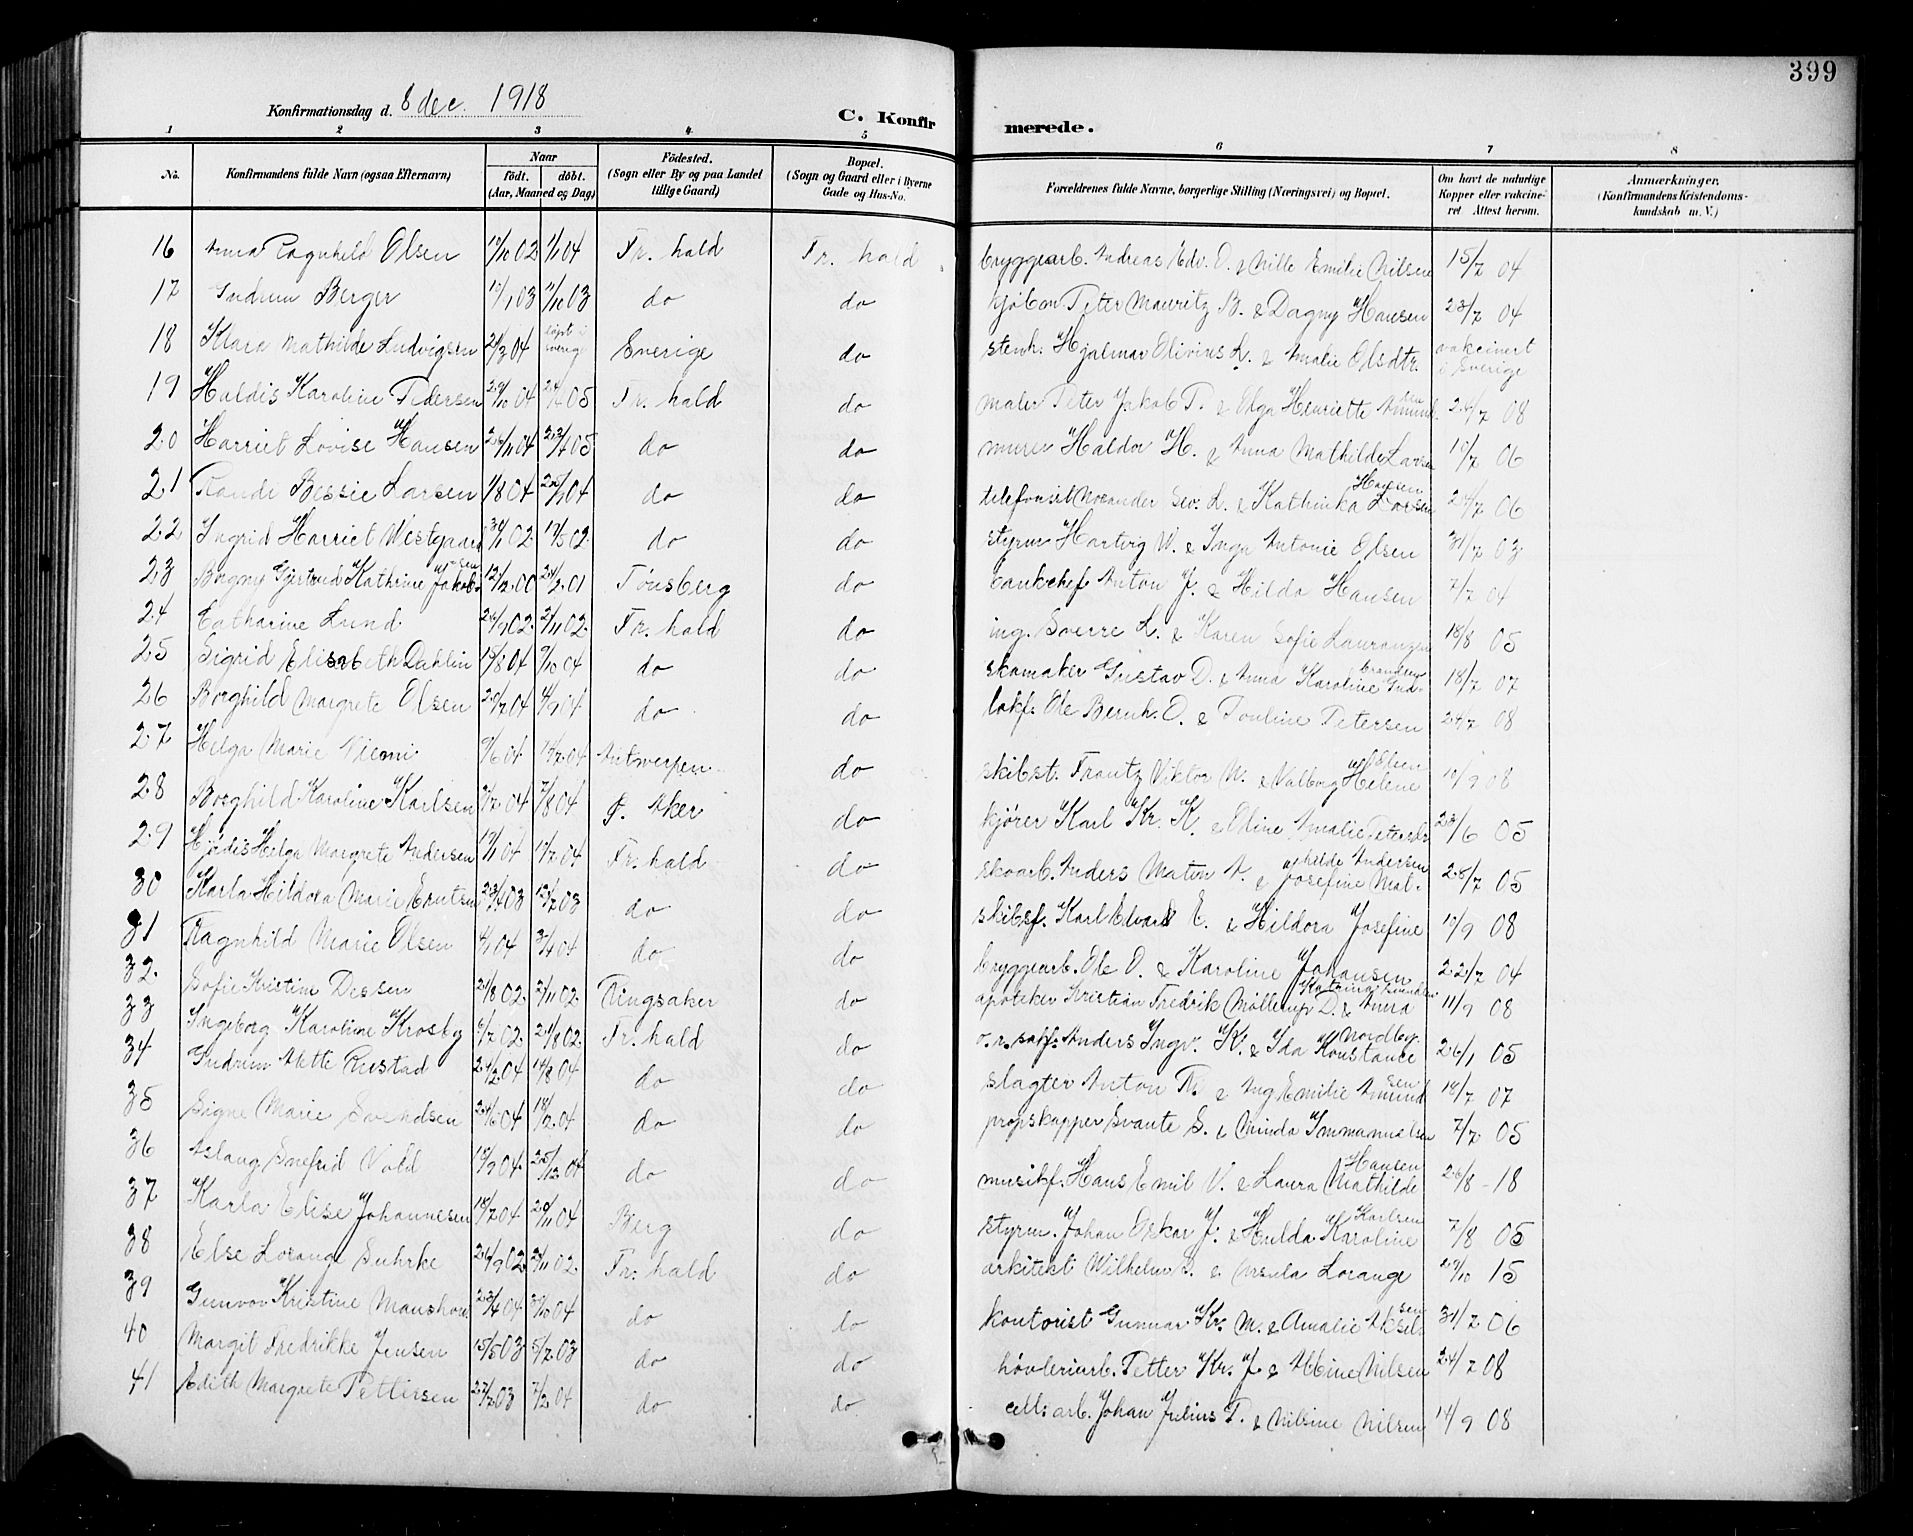 399
Konfirmationsdag d. 8 dec. 1918
C. Konfirmerede.
1 2 3 4 5 6 7 8
No.
Konfirmandens fulde Navn (ogsaa Efternavn)
Naar
födt. döbt.
(Aar, Maaned og Dag)
Födested.
(Sogn eller By og paa Landet tillige Gaard)
Bopæl.
(Sogn og Gaard eller i Byerne Gade og Hus-No.
Forældrenes fulde Navne, borgerlige Stilling (Næringsvei) og Bopæl.
Om havt de naturlige Kopper eller vakcineret Attest herom.
Anmærkninger.
(Konfirmandens Kristendomskundskab m. V.)
16 Anna Ragnhild Olsen 04 Fr. hald Fr. hald bryggearb. Andreas Edv. O. & Mille Emilie Nilsen 15/7 04
17 Gudrun Berger 03 do do kjöbm. Peter Mauritz B. & Dagny Hansen 23/7 04
18 Klara Mathilde Ludvigsen 04 Sverige do stenh. Hjalmar Olivius L. & Amalie Olsdtr. vakcinert i Sverige
19 Haldis Karoline Pedersen 29/10 04 05 Fr. hald do maler Peter Jakob P. & Olga Henriette 24/7 08
20 Harriet Lovise Hansen 26/11 04 05 do do murer Haldor H. & Anna Mathilde Larsen 06
21 Randi Bessie Larsen 1/8 04 04 do do Sev. L. & Kathinka Hansen 24/7 06
22 Ingrid Harriet Westgaard 02 02 do do styrm Hartvig W. & Inga Antonie Olsen 31/7 03
23 Dagny Gjertrud Kathrine Jakobsen 12/12 00 24/2 01 Tønsberg do bankchef Anton J. & Hilda Hansen 7/7 04
24 Catharine Lund 26/9 02 2/11 02 Fr. hald do ing. Sverre L. & Karen Sofie Laurantzen 18/8 05
25 Sigrid Elisabeth Dahlin 04 9/10 04 do do skomaker Gustav D. & Anna Karoline Gudbrandsen 18/7 07
26 Borghild Margrete Olsen 20/7 04 4/9 04 do do lokf. Ole Bernh. O. & Pouline Petersen 24/7 08
27 Helga Marie 9/6 04 04 Antwerpen do skibst. Frantz Viktor N. & Valborg Helene Olsen 10/9 08
28 Borghild Karoline Karlsen 04 7/8 04 Ø. Aker do kjører Karl Kr. K. & Oline Amalie 23/6 05
29 Hjördis Helga Margrete Andersen 04 04 Fr. hald do skoarb. Anders Maton A. & Josefine Mathilde Andersen 28/7 05
30 Karla Hildora Marie 23/4 03 12/7 03 do do skibsf. Karl Edvard E. & Hildora Josefine 10/9 08
31 Ragnhild Marie Olsen 4/1 04 3/4 04 do do bryggearb. Ole O. & Karoline Johansen 22/7 04
32 Sofie Kristine Dessen 21/8 02 2/11 02 Ringsaker do apoteker Kristian Fredrik Möllerup D. & Anna Katrina 11/9 08
33 Ingeborg Karoline Krosby 6/7 02 24/8 02 Fr. hald do Anders Ingv. K. & Ida Konstance Nordby. 26/1 05
34 Gudrun Mette Rustad 24/2 04 14/8 04 do do slagter Anton R. & Ing Emilie Amundsen 18/7 07
35 Signe Marie Svendsen 24/6 04 18/2 04 do do propskapper Svante S. & Minda Immanuelsen 7/7 05
36 Aslaug Snefrid Vold 15/9 04 25/12 04 do do musikf. Hans Emil V. & Laura Mathilde Hansen 26/8 - 18
37 Karla Elise Johannesen 18/7 04 20/11 04 Berg do styrm. Johan Oskar J. & Hulda Karoline Karlsen 7/8 05
38 Else Lorange Suhrke 26/9 02 2/11 02 Fr. hald do arkitekt Wilhelm S. & Ursula Lorange 29/10 15
39 Gunvor Kristine 23/4 04 04 do do kontorist Gunnar Kr. M. & Amalie Akselsen 31/7 06
40 Margit Fredrikke Jensen 15/5 03 5/7 03 do do høvleriarb. Petter Kr. J. & Albine Nilsen 24/7 08
41 Edith Margrete Pettersen 27/7 03 7/2 04 do do cell. arb. Johan Julius P. & Nilsine Nilsen 14/9 08